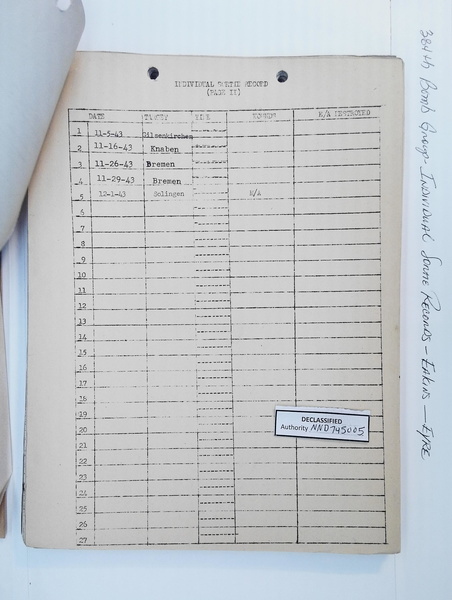 INDIVIDUAL SORTIE RECORD
(PAGE II)
DATE TARGET TIME REMARKS E/A DESTROYED
1 11-5-43 Gilsenkirchen
2 11-16-43 Knaben
3 11-26-43 Bremen
4 11-29-43 Bremen
5 12-1-43 Solingen
6
7
8
9
10
11
12
13
14
15
16
17
18
19
20
21
22
23
24
25
26
27
DECLASSIFIED
Authority NND 745005
384th Bomb Group - Individual Sortie Records - Eakins - Eyre